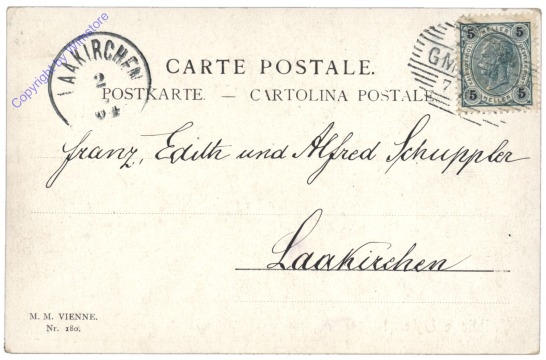 Copyright by Wimstore
LAAKIRCHEN
2
04
5 5
HELLER HELLER
5 5
GM
7
CARTE POSTALE.
POSTKARTE. — CARTOLINA POSTALE
Franz, Edith und Alfred Schuppler
Laakirchen
M. M. VIENNE.
Nr. 180.